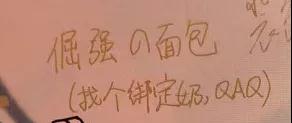 倔强の面包
(找个绑定奶,QAQ)